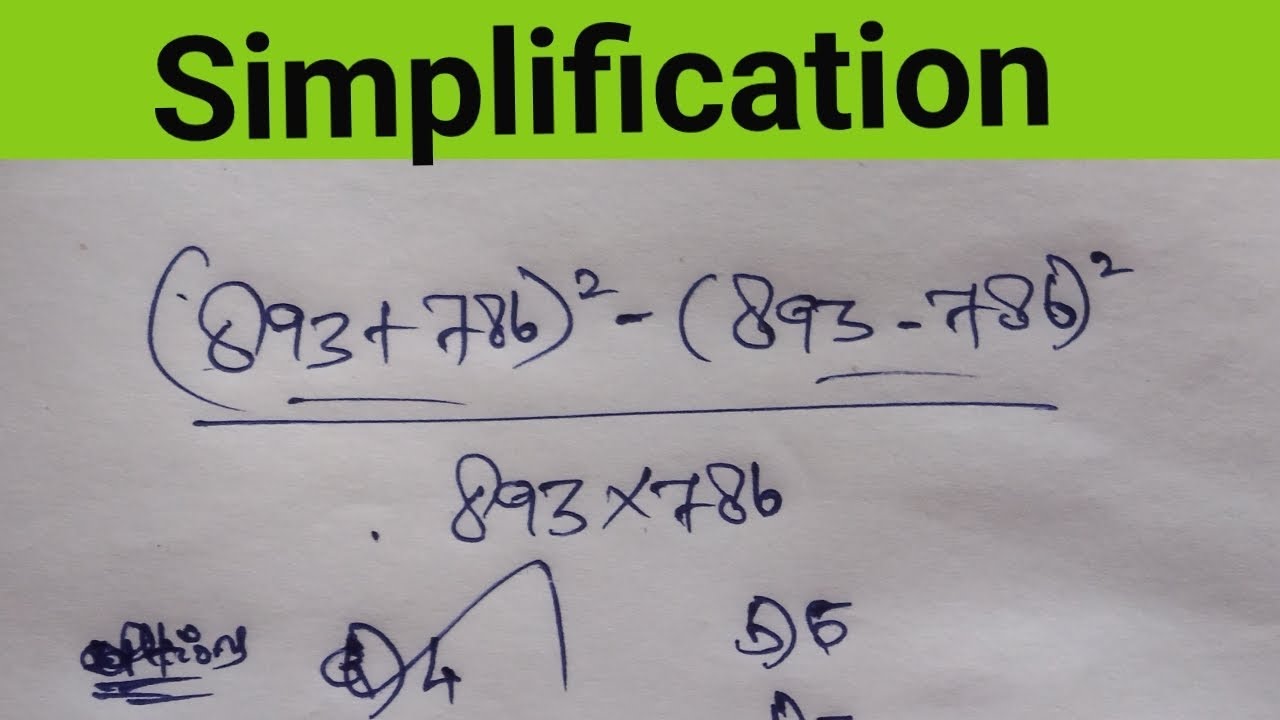 Simplification
(893+786)² - (893-786)²
893×786
option
4
5)5